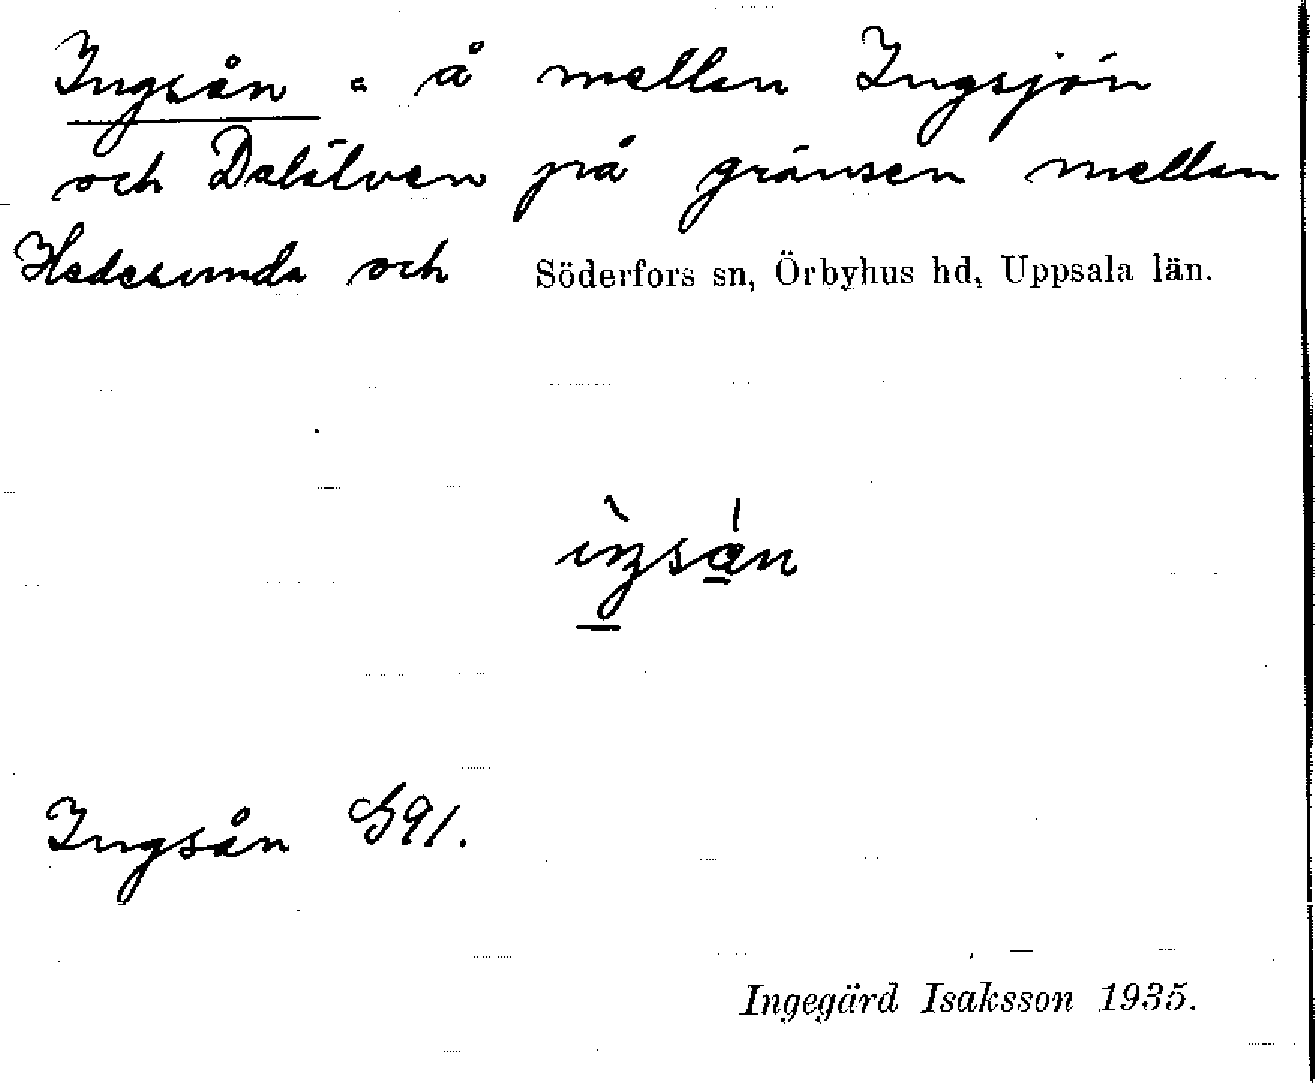 Ingsån : å mellan Ingsjön
och Dalälven på gränsen mellan
Hedesunda och Söderfors sn, Örbyhus hd, Uppsala län.
ìŋsån
Ingsån G91.
Ingegärd Isaksson 1935.